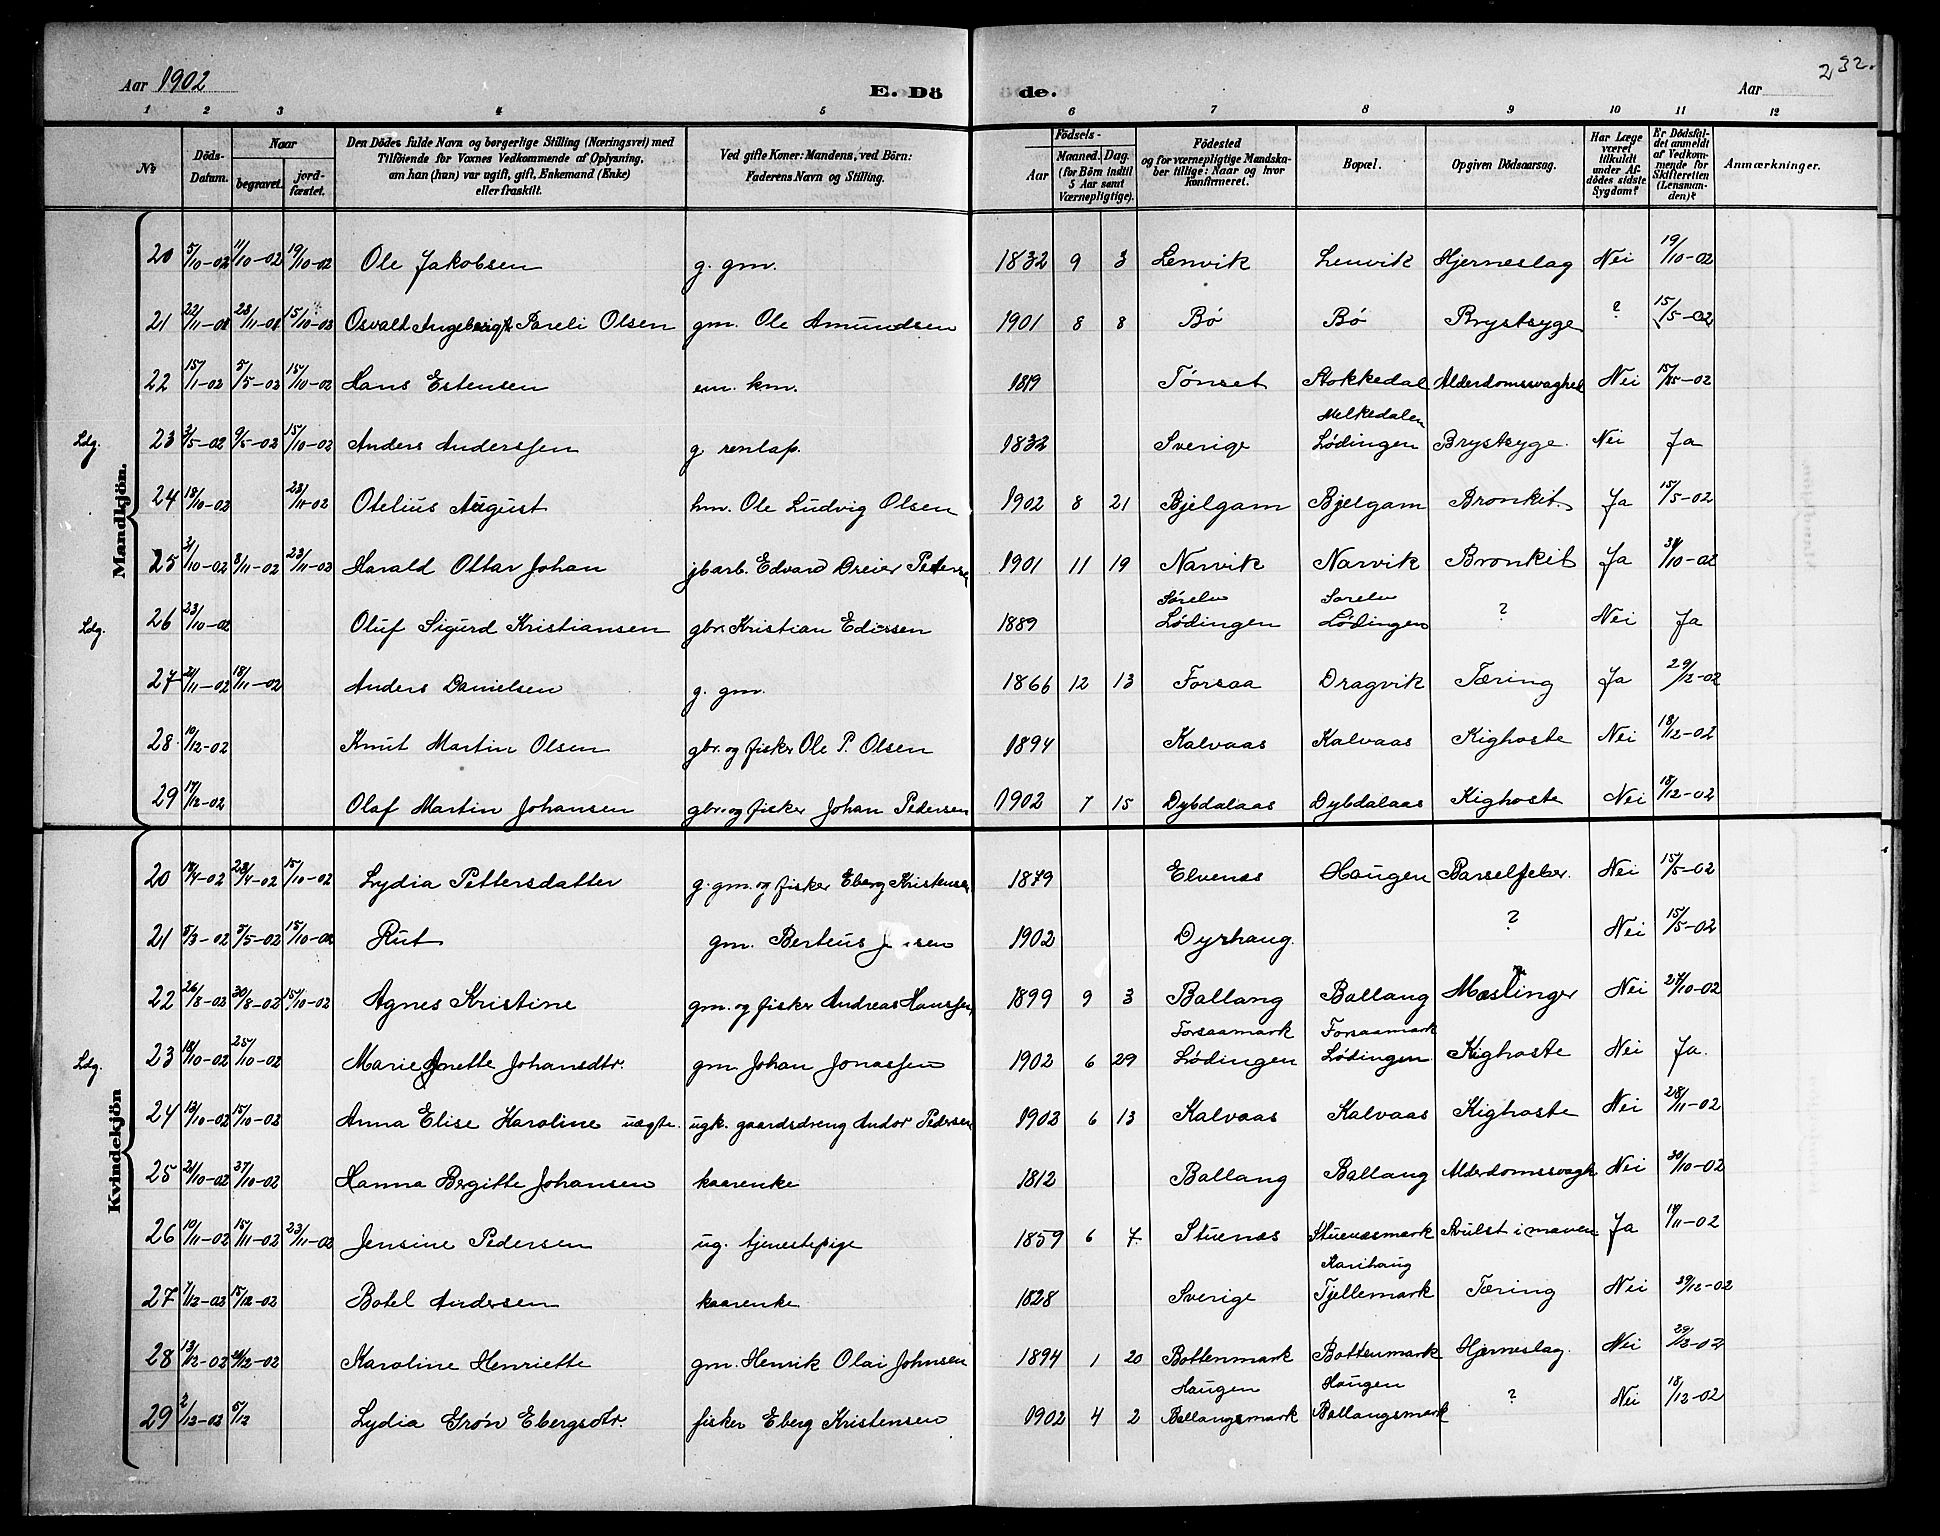 Aar 1902 E. Dö de. Aar 232.
1 2 3 4 5 6 7 8 9 10 11 12
No. Döds-Datum. Naar begravet. jord-fæstet. Den Dödes fulde Navn og borgerlige Stilling (Næringsvei) med Tilföiende for Voxnes Vedkommende af Oplysning, om han (hun) var ugift, gift, Enkemand (Enke) eller fraskilt. Ved gifte Koner: Mandens, ved Börn: Faderens Navn og Stilling. Födsels- Aar Maaned. Dag. (for Börn indtil 5 Aar samt Værnepligtige). Födested og for værnepligtige Mandskaber tillige: Naar og hvor Konfirmeret. Bopæl. Opgiven Dödsaarsag. Har Læge været tilkaldt under Afdödes sidste Sygdom? Er Dödsfaldet anmeldt af Vedkommende for Skifteretten (Lensmanden)? Anmærkninger.
Mandkjön.
20 5/10-02 11/10-02 19/10-02 Ole Jakobsen g. gm. 1832 9 3 Lenvik Lenvik Hjerneslag Nei 19/10-02
21 22/11-01 28/11-01 15/10-02 Osvalt Angebrigt Pareli Olsen gm. Ole Amundsen 1901 8 8 Bø Bø Brystsyge ? 15/5-02
22 15/1-02 5/5-02 15/10-02 Hans Estensen em. km. 1819 Tønset Stokkedal Alderdomssvaghed Nei 15/5-02
Melkedalen
Ldg. 23 3/5-02 9/5-02 15/10-02 Anders Anderssen g. renlap. 1832 Sverige Lødingen Brystsyge. Nei Ja
24 18/10-02 23/11-02 Otelius August hm. Ole Ludvig Olsen 1902 8 21 Bjelgam Bjelgam Bronkit. Ja 15/5-02
25 31/10-02 8/11-02 23/11-02 Harald Ottar Johan jbarb. Edvard Dreier Peterse 1901 11 19 Narvik Narvik Bronkit Ja 31/10-02
Sørelv Sørelv
Ldg. 26 23/10-02 Oluf Sigurd Kristiansen gbr. Kristian Edissen 1889 Lødingen Lødingen ? Nei Ja
27 2/11-02 18/11-02 Anders Danielsen g. gm. 1866 12 13 Forsaa Dragvik Tæring Ja 29/12-02
28 10/12-02 Knut Martin Olsen gbr. og fisker Ole P. Olsen 1894 Kalvaas Kalvaas Kighoste Nei 18/12-02
29 17/12-02 Olaf Martin Johansen gbr. og fisker Johan Pedersen 1902 7 15 Dybdalaas Dybdalaas Kighoste Nei 18/12-02
Kvindekjön
20 18/4-02 28/4-02 15/10-02 Lydia Pettersdatter g. gm. og fisker Eberg Kristensen 1879 Elvenes Haugen Barselfeber. Nei 15/5-02
21 5/3-02 5/5-02 15/10-02 Rut gm. Berteus 1902 Dyrhaug. ? Nei 15/5-02
22 26/8-02 30/8-02 15/10-02 Agnes Kristine gm. og fisker Andreas Hanssen 1899 9 3 Ballang Ballang Mæslinger Nei 27/10-02
Forsaamark Forsaamark
Ldg. 23 18/10-02 25/10-02 Marie Anette Johansdtr. gm. Johan Jonassen 1902 6 29 Lødingen Lødingen Kighoste Nei Ja.
24 13/10-02 15/10-02 Anna Elise Karoline uægte. ugk. gaardsdreng Andor Pedersen 1902 6 13 Kalvaas Kalvaas Kighoste Nei 28/11-02
25 21/10-02 27/10-02 Hanna Bergitte Johansen kaarenke 1812 Ballang Ballang Alderdomssvagh. Nei 30/10-02
26 10/11-02 15/11-02 23/11-02 Jensine Pedersen ug. tjenestepige 1859 6 7. Stuenæs Stuenæsmark Svulst i maven Ja 14/11-02
Karihaug
27 7/12-02 15/12-02 Botel Andersen kaarenke 1828 Sverige Tjellemark Tæring Nei 29/12-02
28 13/12-02 20/12-02 Karoline Henriette gm. Henrik Olai Johnsen 1894 1 20 Bottenmark Bottenmark Hjerneslag. Nei 29/12-02
Haugen Haugen
29 2/12-02 5/12 Lydia Grøn Ebergsdtr. fisker Eberg Kristensen 1902 4 2 Ballangsmark Ballangsmark ? Nei 18/12-02